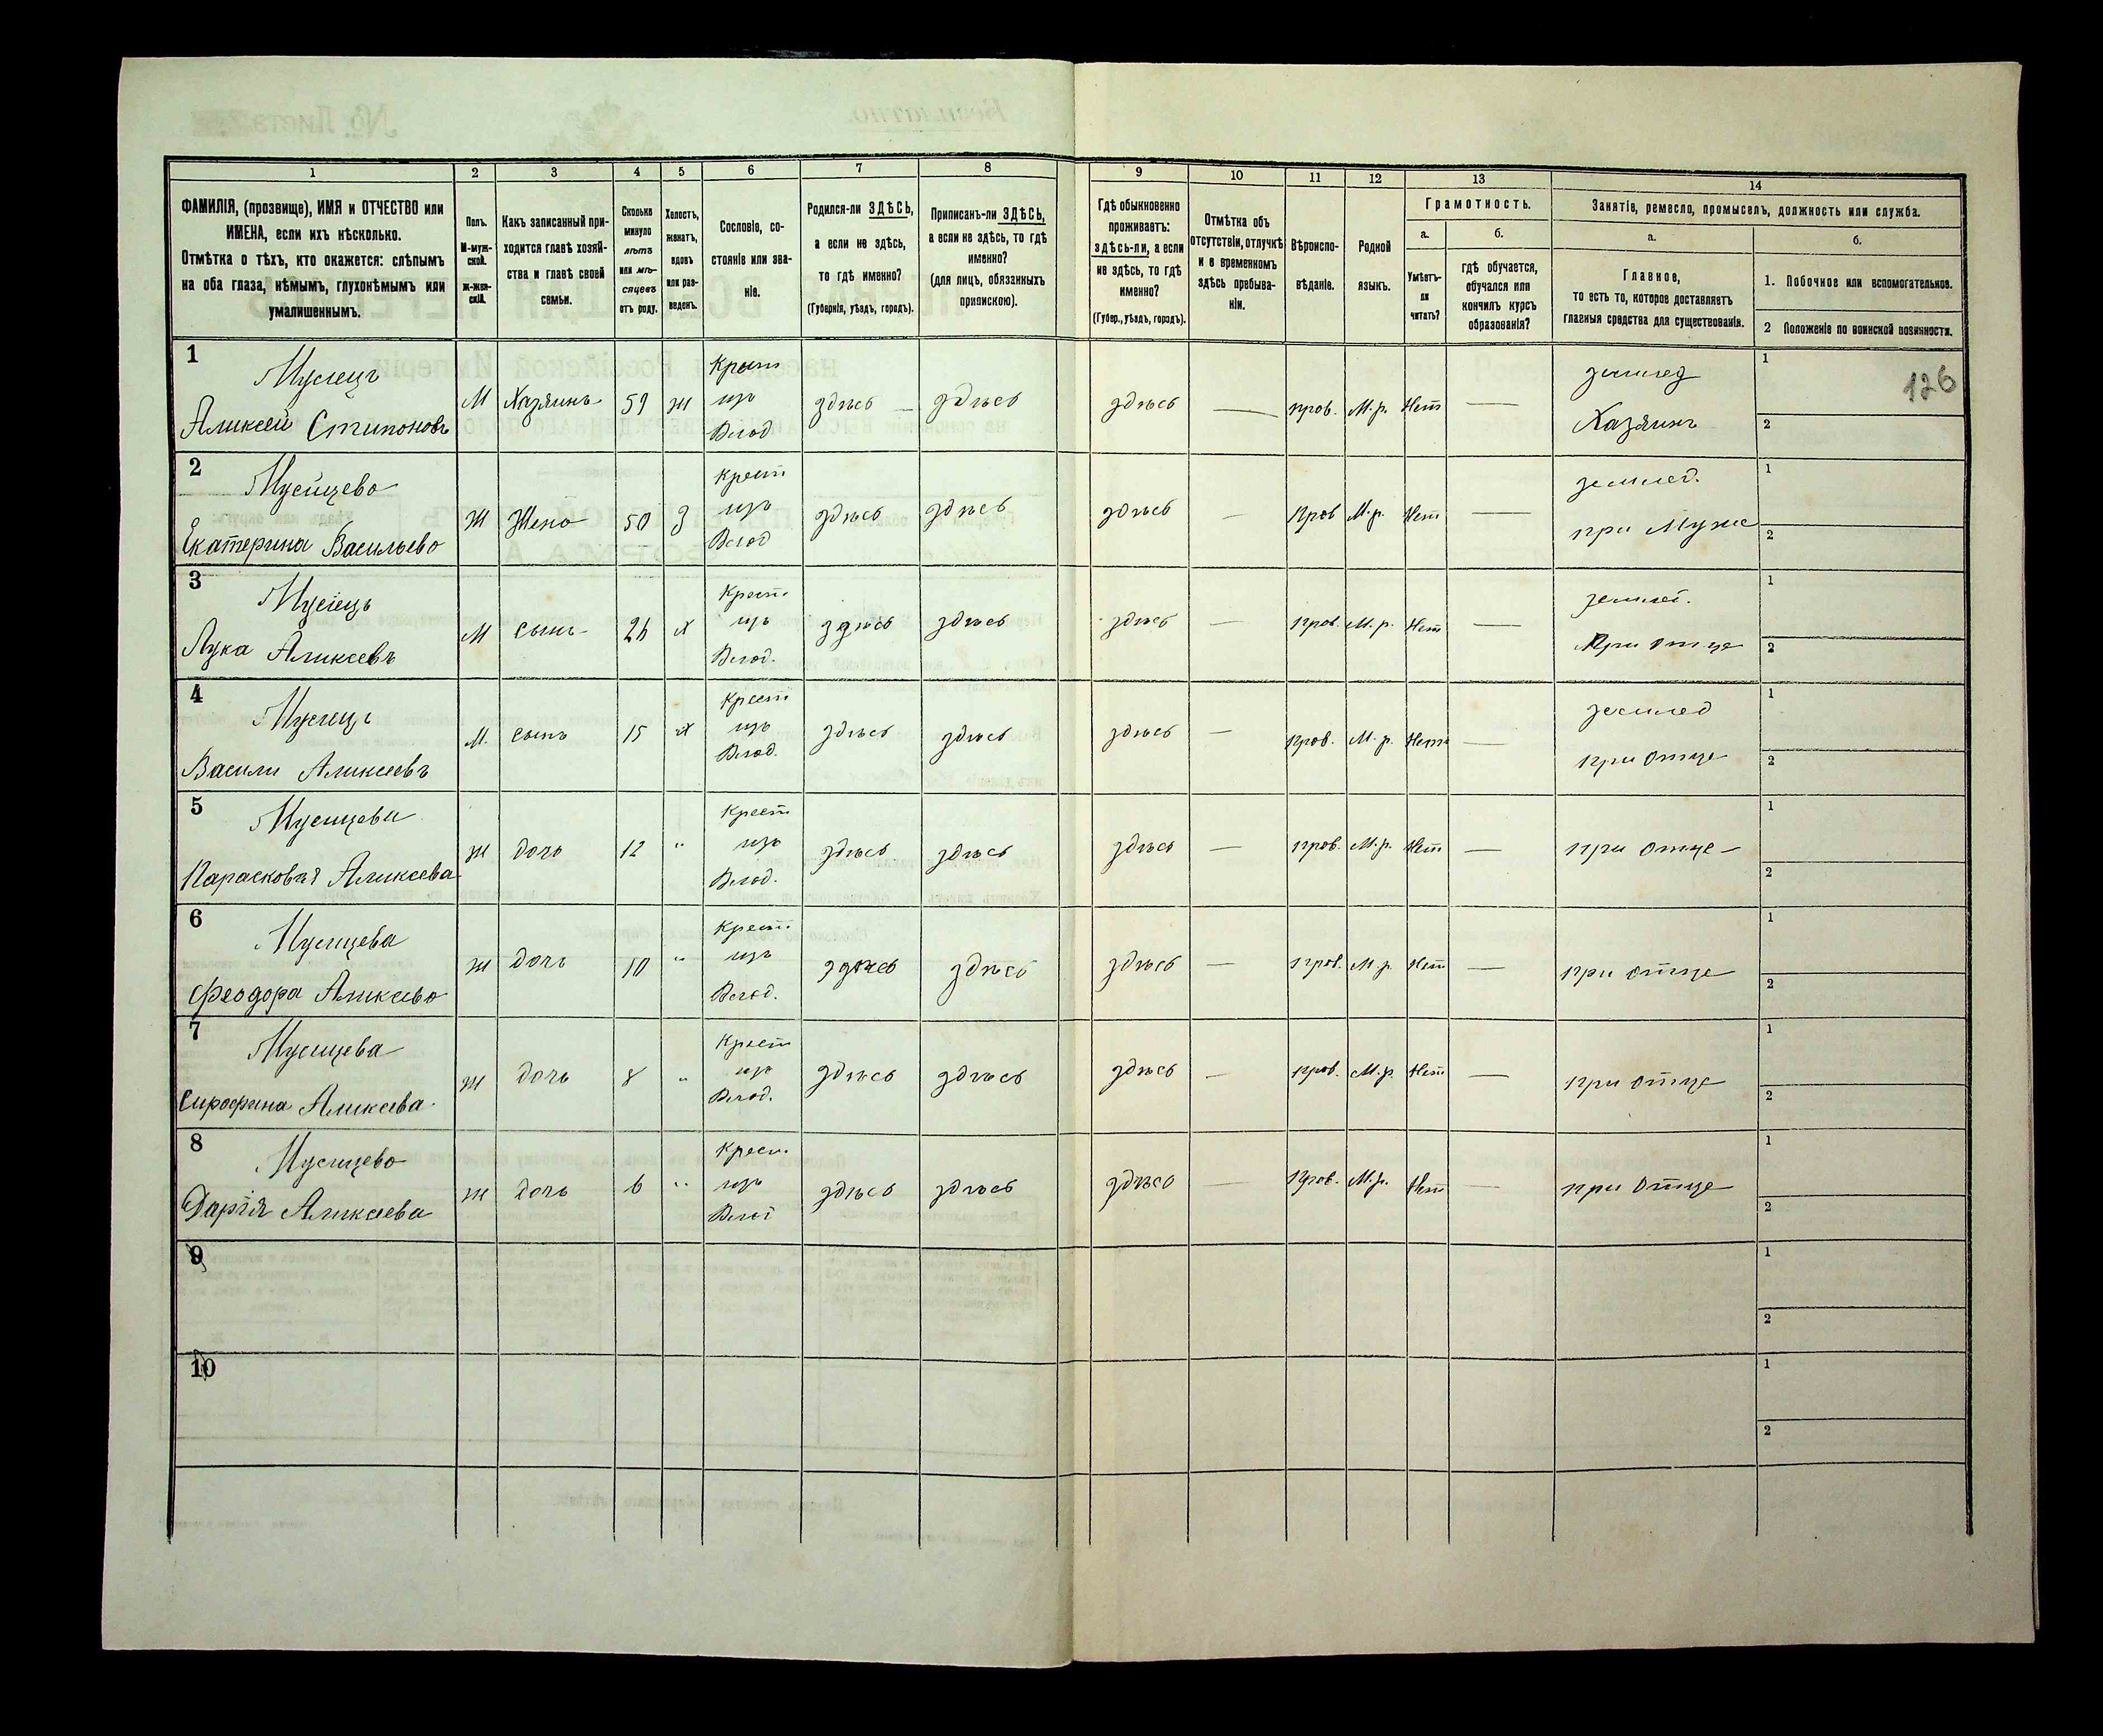 1
2
3
4
5
6
7
8
9
10
11
12
13
14
ФАМИЛІЯ, (прозвище), ИМЯ и ОТЧЕСТВО или
ИМЕНА, если ихъ нѣсколько.
Отмѣтка о тѣхъ, кто окажется: слѣпымъ
на оба глаза, нѣмымъ, глухонѣмымъ или
умалишеннымъ.
Полъ.
М-муж-
ской.
Ж-жен-
скій.
Какъ записанный при-
ходится главѣ хозяй-
ства и главѣ своей
семьи.
Сколько
минуло
лѣтъ
или мѣ-
сяцевъ
отъ роду.
Холостъ,
женатъ,
вдовъ
или раз-
веденъ.
Сословіе, со-
стояніе или зва-
ніе.
Родился-ли ЗДѢСЬ,
а если не здѣсь,
то гдѣ именно?
(Губернія, уѣздъ, городъ).
Приписанъ-ли ЗДѢСЬ,
а если не здѣсь, то гдѣ
именно?
(для лицъ, обязанныхъ
припискою).
Гдѣ обыкновенно
проживаетъ:
здѣсь-ли, а если
не здѣсь, то гдѣ
именно?
(Губер., уѣздъ, городъ).
Отмѣтка объ
отсутствіи, отлучкѣ
и о временномъ
здѣсь пребыва-
ніи.
Вѣроиспо-
вѣданіе.
Родной
языкъ.
Грамотность.
а.
Умѣетъ-
ли
читать?
б.
гдѣ обучается,
обучался или
кончилъ курсъ
образованія?
Занятіе, ремесло, промыселъ, должность или служба.
а.
Главное,
то есть то, которое доставляетъ
главныя средства для существованія.
б.
1. Побочное или вспомогательное.
2 Положеніе по воинской повинности.
126
1
Мусіецъ
Аликсей Стипоновъ
М
Хазяинъ
59
ж
изъ
здѣсь —
здѣсь
здѣсь
—
прав.
М.р.
Нет
—
землед
Хазяинъ
1
2
2
Екатерина Васильево
Ж
Жено
50
З
Крест
изъ
здѣсь
здѣсь
здѣсь
—
Прав
М.р.
Нет
—
землед.
при Муже
1
2
3
Мусіець
Лука Аликсевъ
М
Сынъ
х
Крест.
изъ
здѣсь
здѣсь
здѣсь
—
прав.
М.р.
Нет
—
При отце
1
2
4
Васили Аликсевъ
М.
Сынъ
15
х
Крест
изъ
здѣсь
здѣсь
здѣсь
—
Прав.
М.р.
Нет
—
землед
при отце
1
2
5
Мусицева
Парасковія Аликсева
Ж
дочь
12
"
Крест
изъ
здѣсь
здѣсь
здѣсь
—
прав.
М.р.
Нет
—
при отце
1
2
6
Мусицева
Феодора Аликсево
Ж
дочь
10
"
Крест
изъ
здѣсь
здѣсь
здѣсь
—
прав.
М.р.
Нет
—
при отце
1
2
7
Мусицева
Сирофина Аликсева
Ж
дочь
8
"
Крест
изъ
здѣсь
здѣсь
здѣсь
—
прав.
М.р.
Нет
—
при отце
1
2
8
Мусицево
Дарія Аликсева
Ж
дочь
6
"
Крест
изъ
здѣсь
здѣсь
здѣсь
—
Прав.
М.р.
Нет
—
при отце
1
2
9
1
2
10
1
2